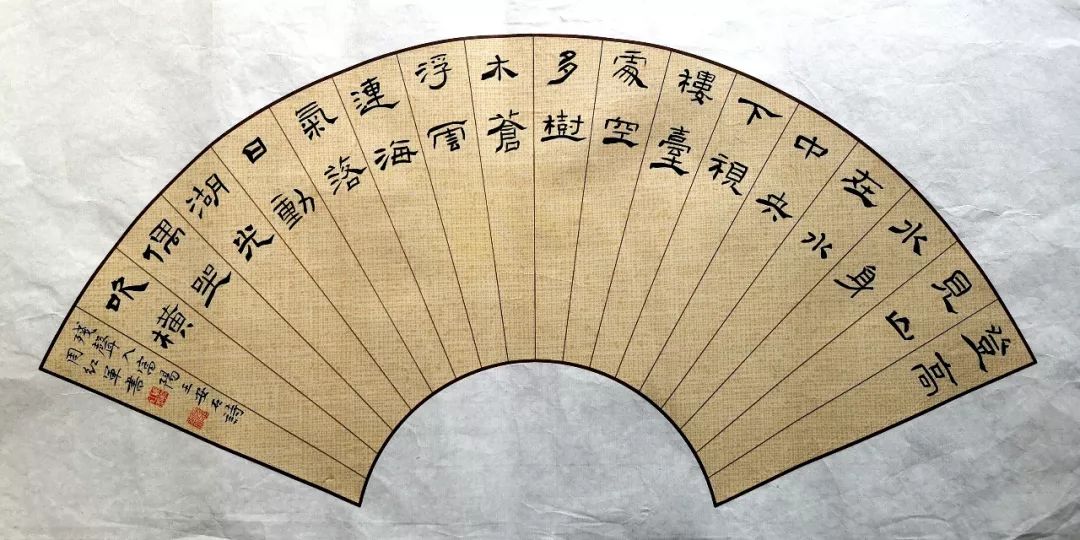 登高
見山
水身
在水
中央
下視
樓臺
處空
多樹
木蒼
浮雲
連海
氣落
日動
湖光
偶坐
吹橫
殘聲入富陽王安石詩
周紅軍書